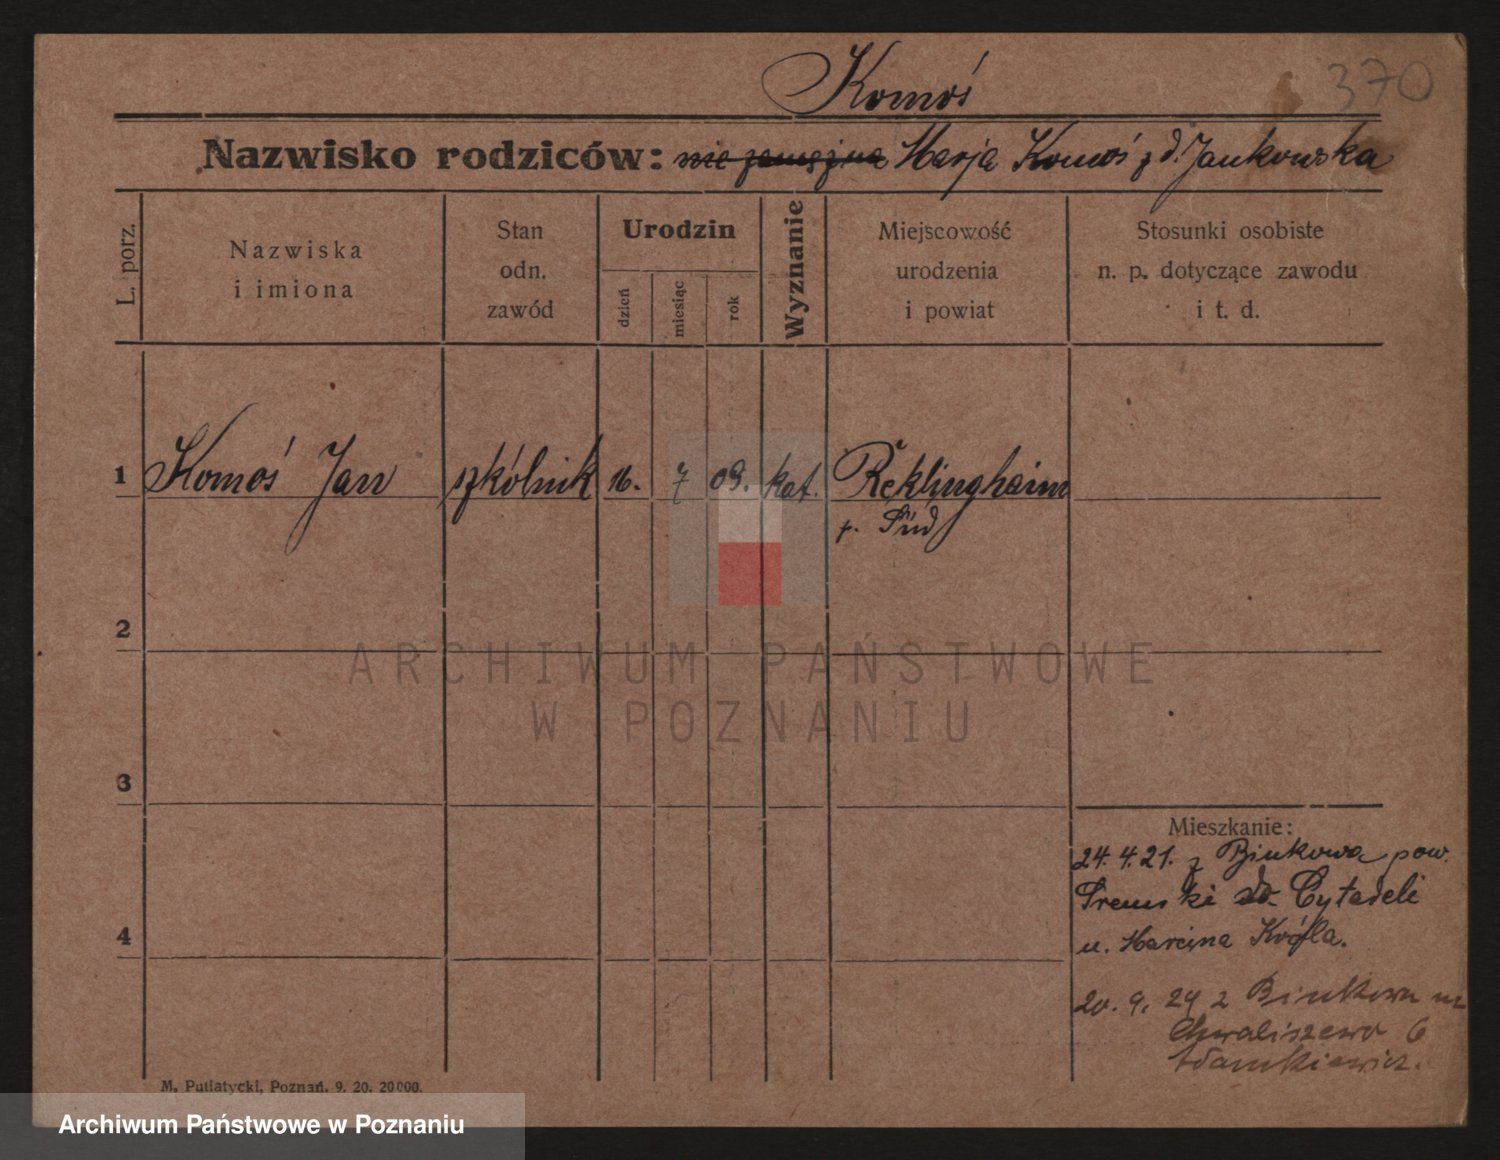 Komoś
370
Nazwisko rodziców: nie zamężna Marja Komoś z d. Jankowska
L. porz.
Nazwiska
i imiona
Stan
odn.
zawód
Urodzin
dzień
miesiąc
rok
Wyznanie
Miejscowość
urodzenia
i powiat
Stosunki osobiste
n. p. dotyczące zawodu
i t. d.
1 Komoś Jan szkólnik 16. 7 09. kat. Reklinghaim
p. Süd
2
ARCHIWUM PAŃSTWOWE
W POZNANIU
3
Mieszkanie:
24.4.21. z Binkowa pow.
Śremski do Cytadeli
4
u. Marcina Królla.
20. 9. 24 z Binkowa na
Chwaliszewo 6
Adamkiewicz.
M. Putiatycki, Poznań. 9. 20. 20000.
Archiwum Państwowe w Poznaniu